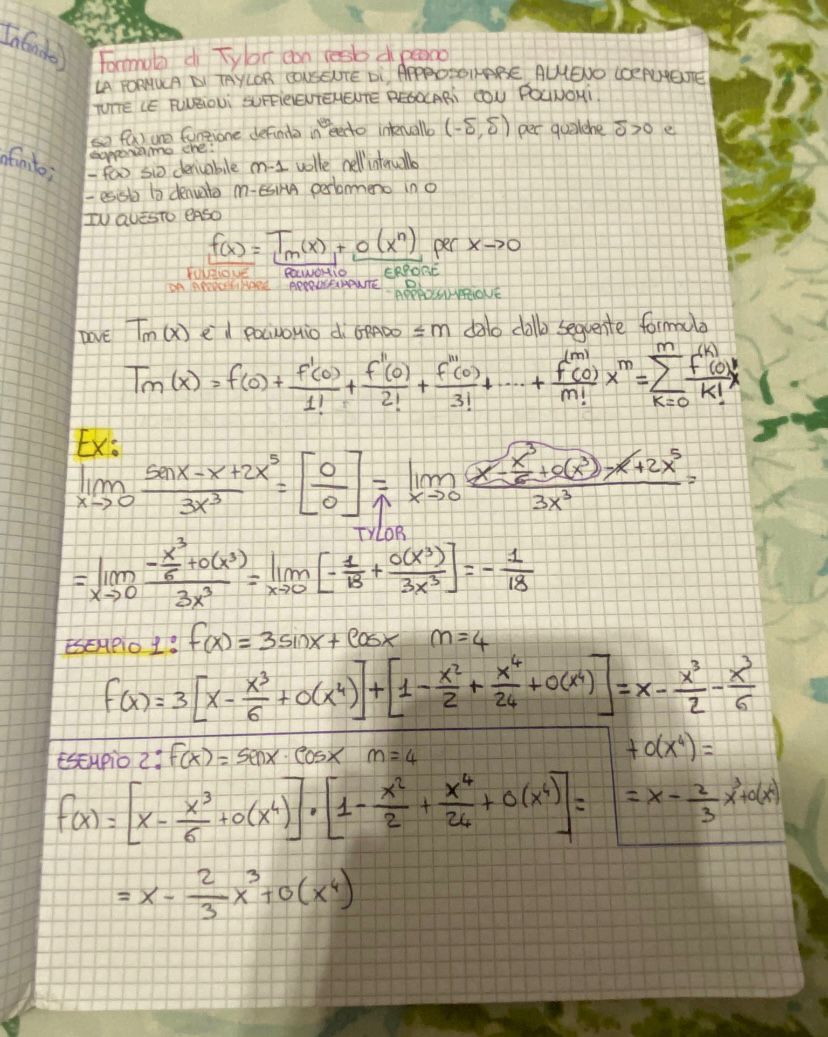 Infinito)
nfinito;
Formula di Tylor con resto di peano
LA FORMULA DI TAYLOR CONSENTE DI, APPROSSIMARE, ALMENO LOCALMENTE
TUTTE LE FUNZIONI SUFFICIENTEMENTE REGOLARI CON POLINOMI.
sia f(x) una funzione definita in un certo intervallo (-δ, δ) per qualche δ>0 e
supponiamo che:
- f(x) sia derivabile m-1 volte nell'intervallo
- esista la derivata m-ESIMA perlomeno in 0
IN QUESTO CASO
f(x) = Tm(x) + o(xⁿ) per x→0
FUNZIONE DA APPROSSIMARE POLINOMIO APPROSSIMANTE ERRORE DI APPROSSIMAZIONE
DOVE Tm(x) è il POLINOMIO di GRADO ≤m dato dalla seguente formula
Tm(x) = f(0) + f'(0)/1! + f''(0)/2! + f'''(0)/3! + .... + f⁽ᵐ⁾(0)/m! xᵐ = Σ_{k=0}^{m} f⁽ᵏ⁾(0)/k! xᵏ
Ex:
lim x→0 (senx - x + 2x⁵)/3x³ = [0/0] = lim x→0 (x - x³/6 + o(x³) - x + 2x⁵)/3x³ =
TYLOR
= lim x→0 (-x³/6 + o(x³))/3x³ = lim x→0 [-1/18 + o(x³)/3x³] = -1/18
ESEMPIO 1: f(x) = 3sinx + cosx m=4
f(x) = 3[x - x³/6 + o(x⁴)] + [1 - x²/2 + x⁴/24 + o(x⁴)] = x - x³/2 - x³/6
+ o(x⁴) =
= x - 2/3 x³ + o(x⁴)
ESEMPIO 2: f(x) = senx · cosx m=4
f(x) = [x - x³/6 + o(x⁴)] · [1 - x²/2 + x⁴/24 + o(x⁴)] =
= x - 2/3 x³ + o(x⁴)